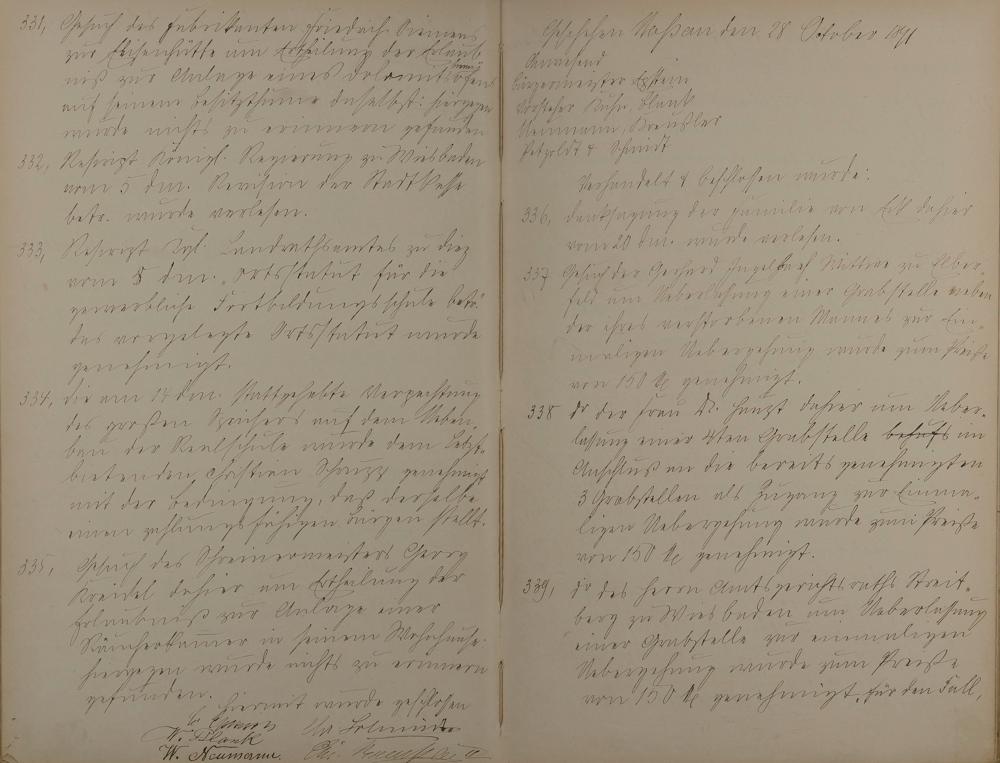 331, Gesuch des Fabrikanten Friedrich Siemens
zur Elisenhütte um Ertheilung der Erlaub
niß zur Anlage eines Dolomitofens
auf seinem Besitzthume daselbst; hiergegen
wurde nichts zu erinnern gefunden
332, Rescript Königl. Regierung zu Wiesbaden
vom 5 dm. Revision der Stadtkasse
betr. wurde verlesen.
333, Rescript Kgl. Landrathsamtes zu Diez
vom 8 dm. Ortsstatut für die
gewerbliche Fortbildungsschule betr.
das vorgelegte Ortsstatut wurde
genehmigt.
334, die am 14 dm. stattgehabte Verpachtung
des großen Speichers auf dem Neben
bau der Realschule wurde dem Letzt
bietenden, Christian genehmigt
mit der Bedingung, daß derselbe
einen zahlungsfähigen Bürgen stellt.
335, Gesuch des Schreinermeisters Georg
Kreidel dahier um Ertheilung der
Erlaubniß zur Anlage einer
Räucherkammer in seinem Wohnhause.
hiergegen wurde nichts zu erinnern
gefunden.
Hiermit wurde geschlossen
W. Blank
W. Neumann.
Geschehen Nassau den 28 October 1891
Anwesend
Bürgermeister
Vorsteher Kuhn, Blank
Neumann, Kreußler
Petzoldt & Schmidt
Verhandelt & beschlossen wurde:
336, Danksagung der Familie von Eck dahier
vom 20 dm. wurde verlesen.
337 Gesuch der Gerhard Engelbach Wittwe zu Elber-
feld um Ueberlassung einer Grabstelle neben
der ihres verstorbenen Mannes zur Ein-
maligen Uebergehung wurde zum Preiße
von 150 M genehmigt.
338 do der Frau Dr. Haupt dahier um Ueber-
lassung einer 4ten Grabstelle behufs im
Anschluß an die bereits genehmigten
3 Grabstellen als Zugang zur Einma-
ligen Uebergehung wurde zum Preiße
von 150 M genehmigt.
339, do des Herrn Amtsgerichtsraths Streit-
berg zu Wiesbaden um Ueberlassung
einer Grabstelle zur einmaligen
Uebergehung wurde zum Preiße
von 150 M genehmigt. für den Fall,